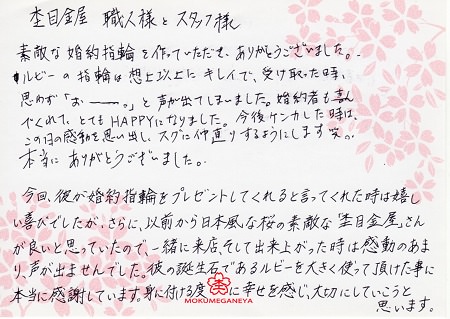 杢目金屋 職人様とスタッフ様
素敵な婚約指輪を作っていただき、ありがとうございました。
ルビーの指輪は想像以上にキレイで、受け取った時、
思わず「おーーー。」と声が出てしまいました。婚約者も喜ん
でくれて、とてもHAPPYになりました。今後ケンカした時は、
この日の感動を思い出し、スグに仲直りするようにします笑。
本当にありがとうございました。
今回、彼が婚約指輪をプレゼントしてくれると言ってくれた時は嬉し
い喜びでしたが、さらに、以前から日本風な桜の素敵な「杢目金屋」さん
が良いと思っていたので、一緒に来店、そして出来上がった時は感動のあま
り、声が出ませんでした。彼の誕生石であるルビーを大きく使って頂けた事に
本当に感謝しています。身に付ける度に幸せを感じ、大切にしていこうと
思います。
MOKUMEGANEYA